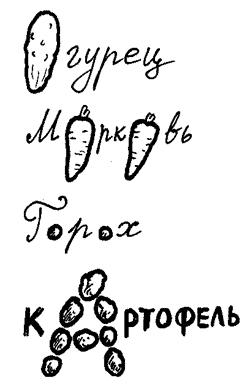 Огурец
Морковь
Горох
КАРТОФЕЛЬ